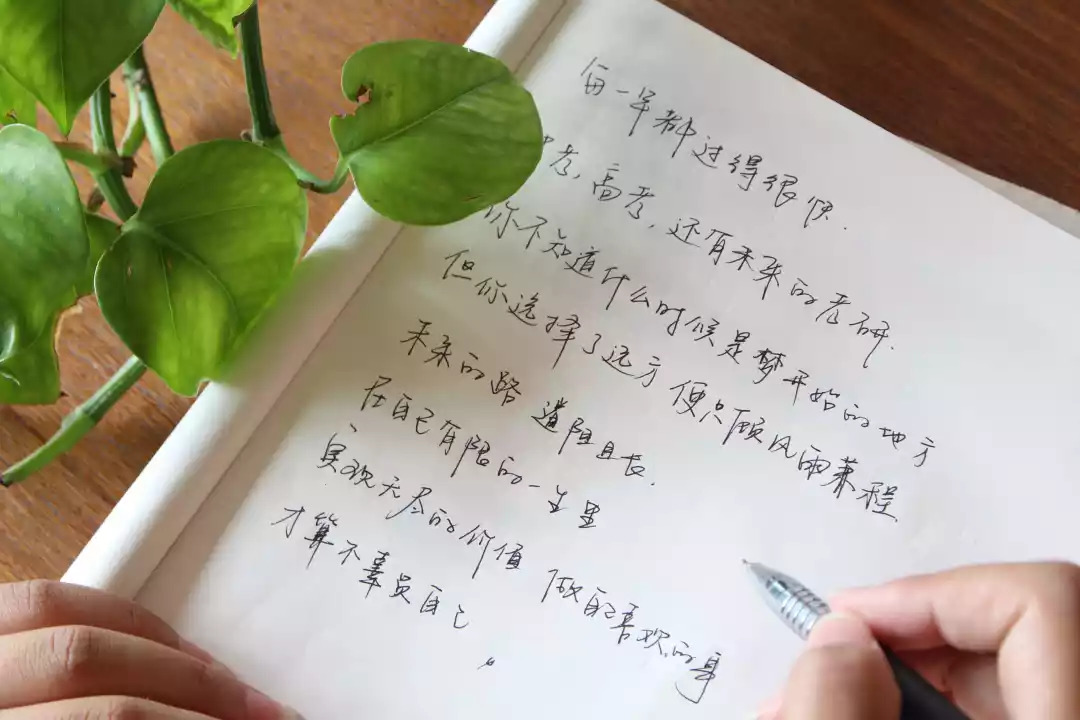 每一年都过得很快.
中考,高考,还有未来的考研.
你不知道什么时候是梦开始的地方
但你选择了远方 便只顾风雨兼程
未来的路 道阻且长.
在自己有限的一生里
实现无尽的价值 做自己喜欢的事
才算不辜负自己